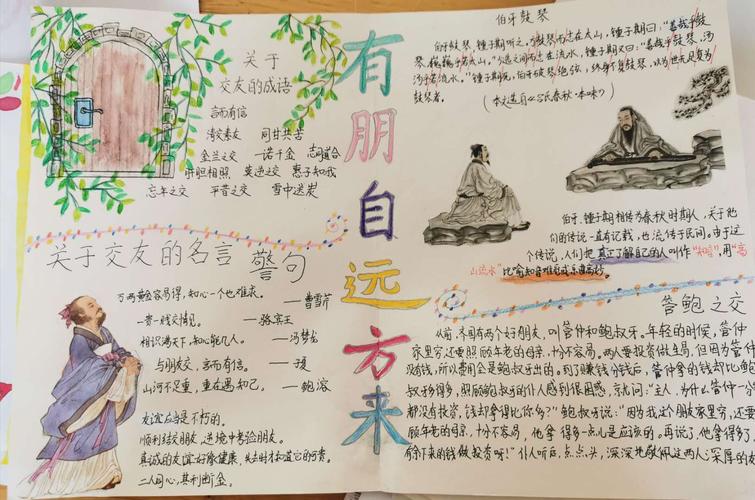 关于
交友的成语
言而有信
清交素友 同甘共苦
金兰之交 一诺千金 志同道合
肝胆相照 莫逆之交 惠子知我
忘年之交 平昔之交 雪中送炭
有朋自远方来
伯牙鼓琴
伯牙鼓琴，锺子期听之。方鼓琴而志在太山，锺子期曰："善哉乎鼓
琴，巍巍乎若太山。"少选之间而志在流水，锺子期又曰："善哉乎鼓琴，汤
汤乎若流水。"锺子期死，伯牙破琴绝弦，终身不复鼓琴，以为世无足复为
鼓琴者。
（本文选自《吕氏春秋·本味》）
伯牙、锺子期相传为春秋时期人，关于他
们的传说一直有记载，也流传于民间。由于这
个传说，人们把真正了解自己的人叫作"知音"，用"高
山流水"比喻知音难觅或乐曲高妙。
关于交友的名言警句
万两黄金容易得，知心一个也难求。
——曹雪芹
一贵一贱交情见。——骆宾王
相识满天下，知心能几人。——冯梦龙
与朋友交，言而有信。——子夏
山河不足重，重在遇知己。——鲍溶
友谊应当是不朽的。
顺利结交朋友，逆境中考验朋友。
真诚的友谊好像健康，失去时才知道它的可贵。
二人同心，其利断金。
管鲍之交
从前，齐国有两个好朋友，叫管仲和鲍叔牙。年轻的时候，管仲
家里穷还要照顾年老的母亲，十分不容易。两人要投资做生意，但因为管仲
没钱，所以费用全是鲍叔牙出的。到了赚钱分钱后，管仲拿的钱却比鲍
叔牙得多，照顾鲍叔牙的仆人感到很困惑，就问："主人，为什么管仲一分
都没有投资，钱却拿得比你多？"鲍叔牙说："因为我这个朋友家里穷，还要
顾年老的母亲，十分不容易，他拿得多一点儿是应该的。再说了，他拿得多了，
余下来的钱做投资呀！"仆人听后，点点头，深深地敬佩这两人：深厚的友